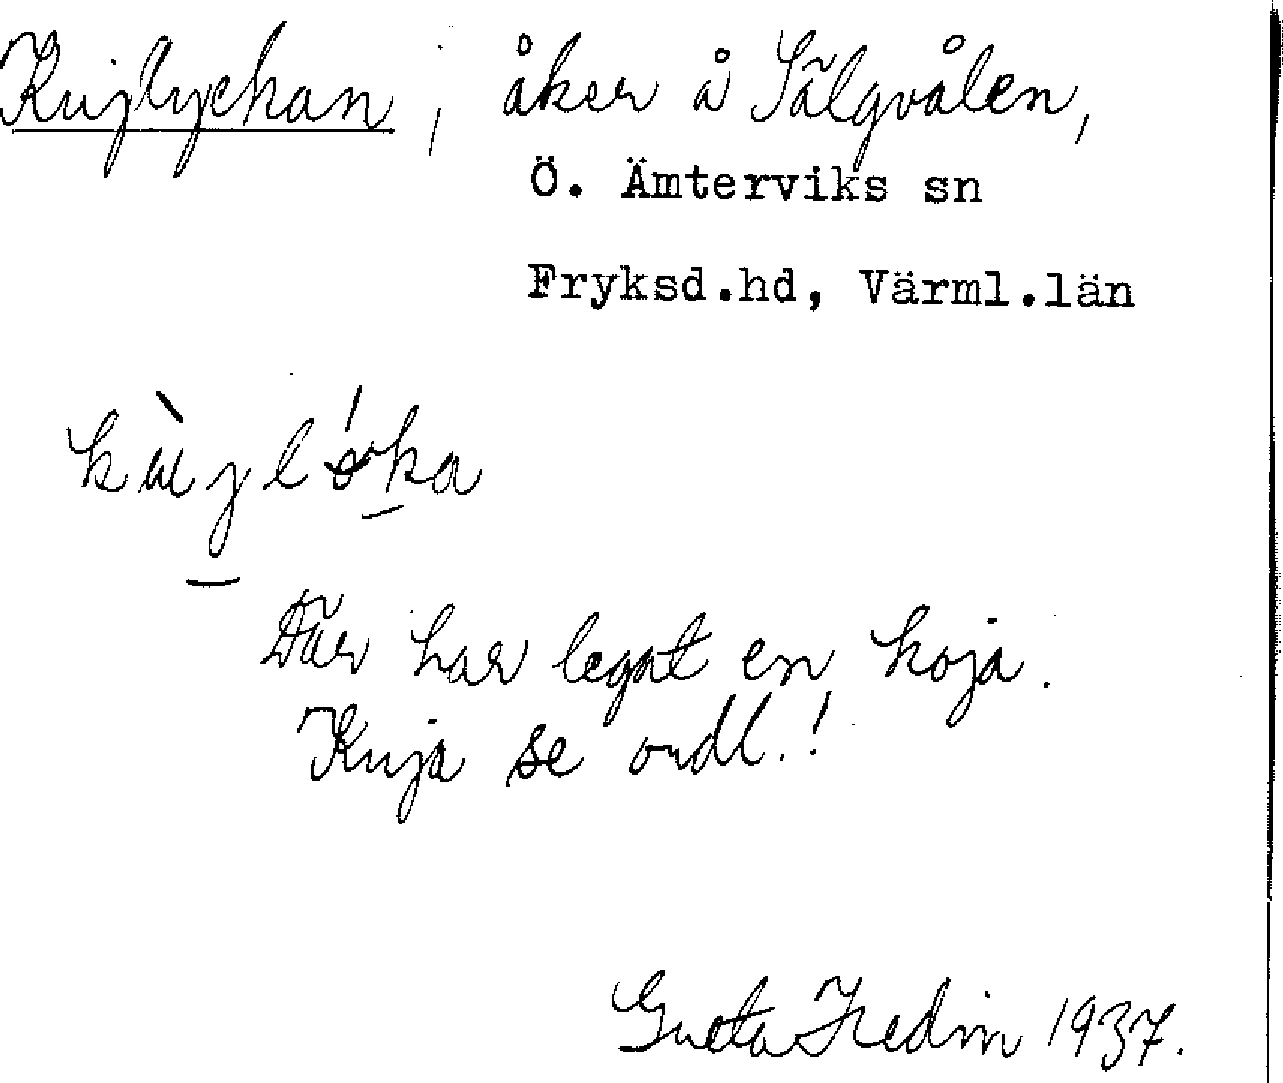 Kujlyckan, åker å Sälgvålen,
Ö. Ämterviks sn
Fryksd.hd, Värml.län
kùjlǿka
Där har legat en koja.
Kuja se ordl.!
Greta Hedin 1937.